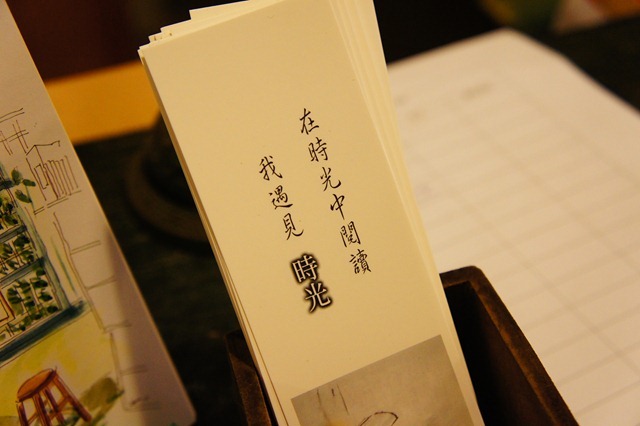 在時光中閱讀
我遇見時光